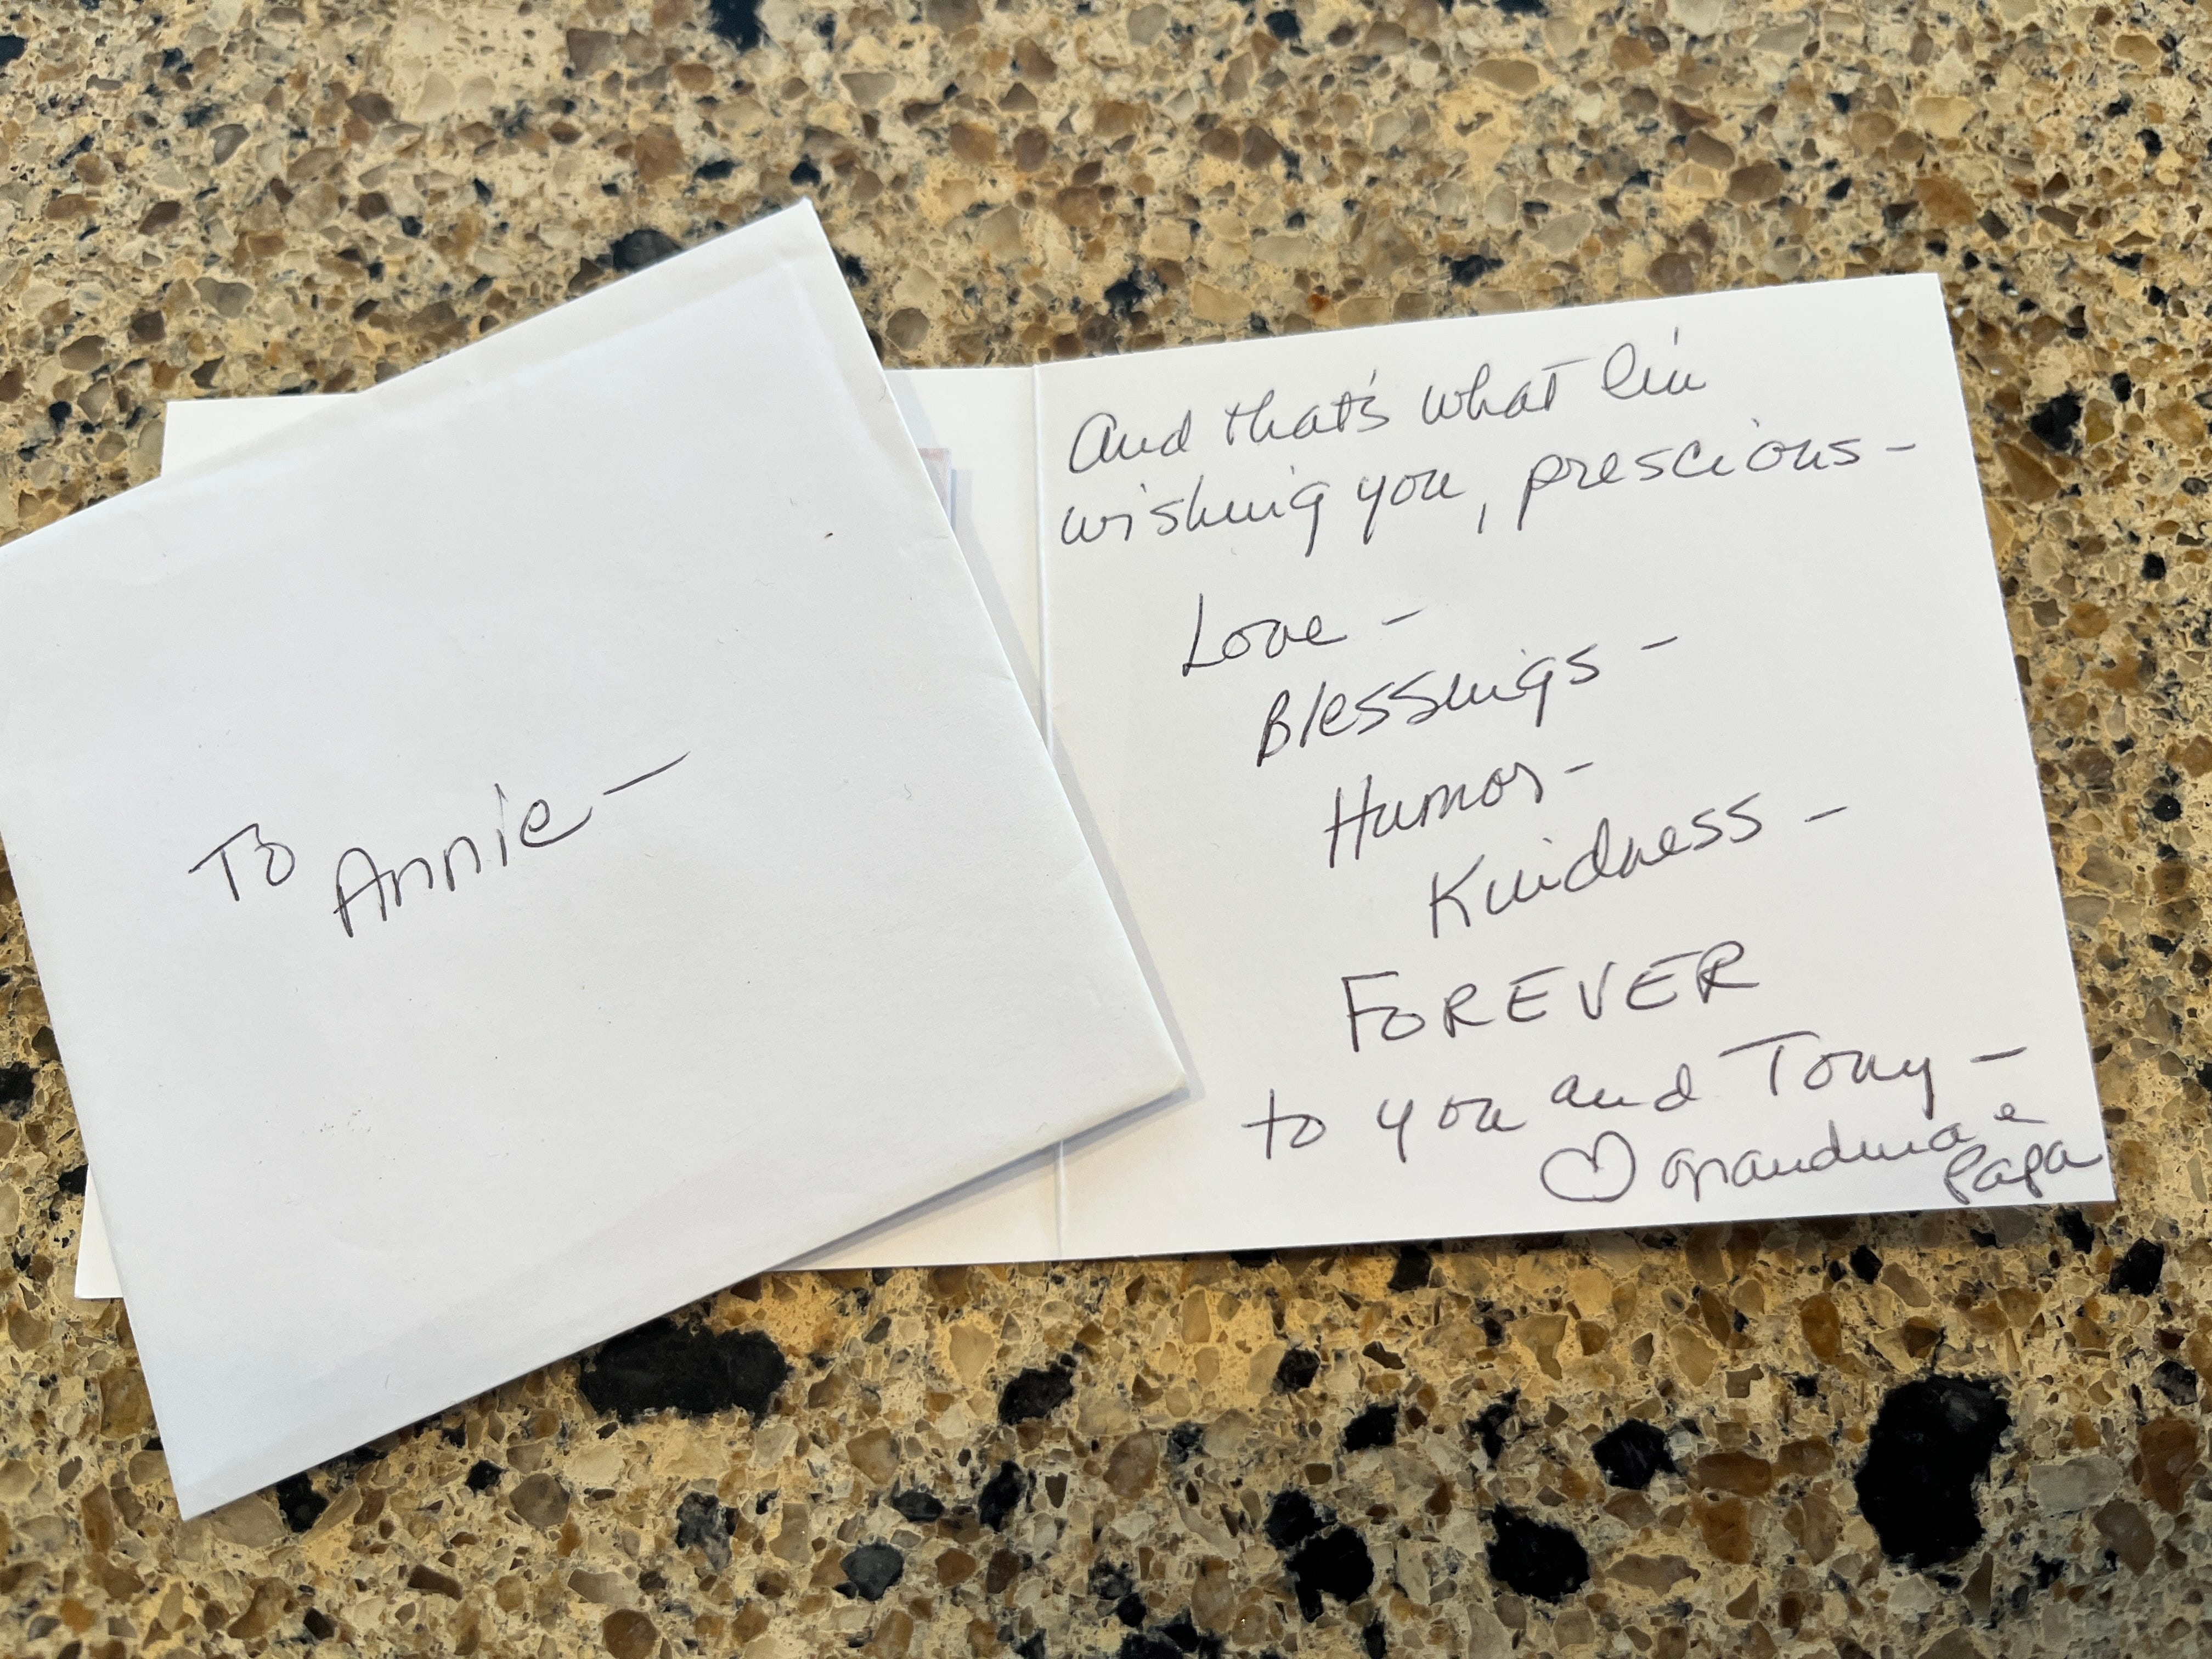 To Annie —
And that's what I'm
wishing you, prescious -
Love -
Blessings -
Humor -
Kindness -
FOREVER
to you and Tony -
♡ grandma e
Papa